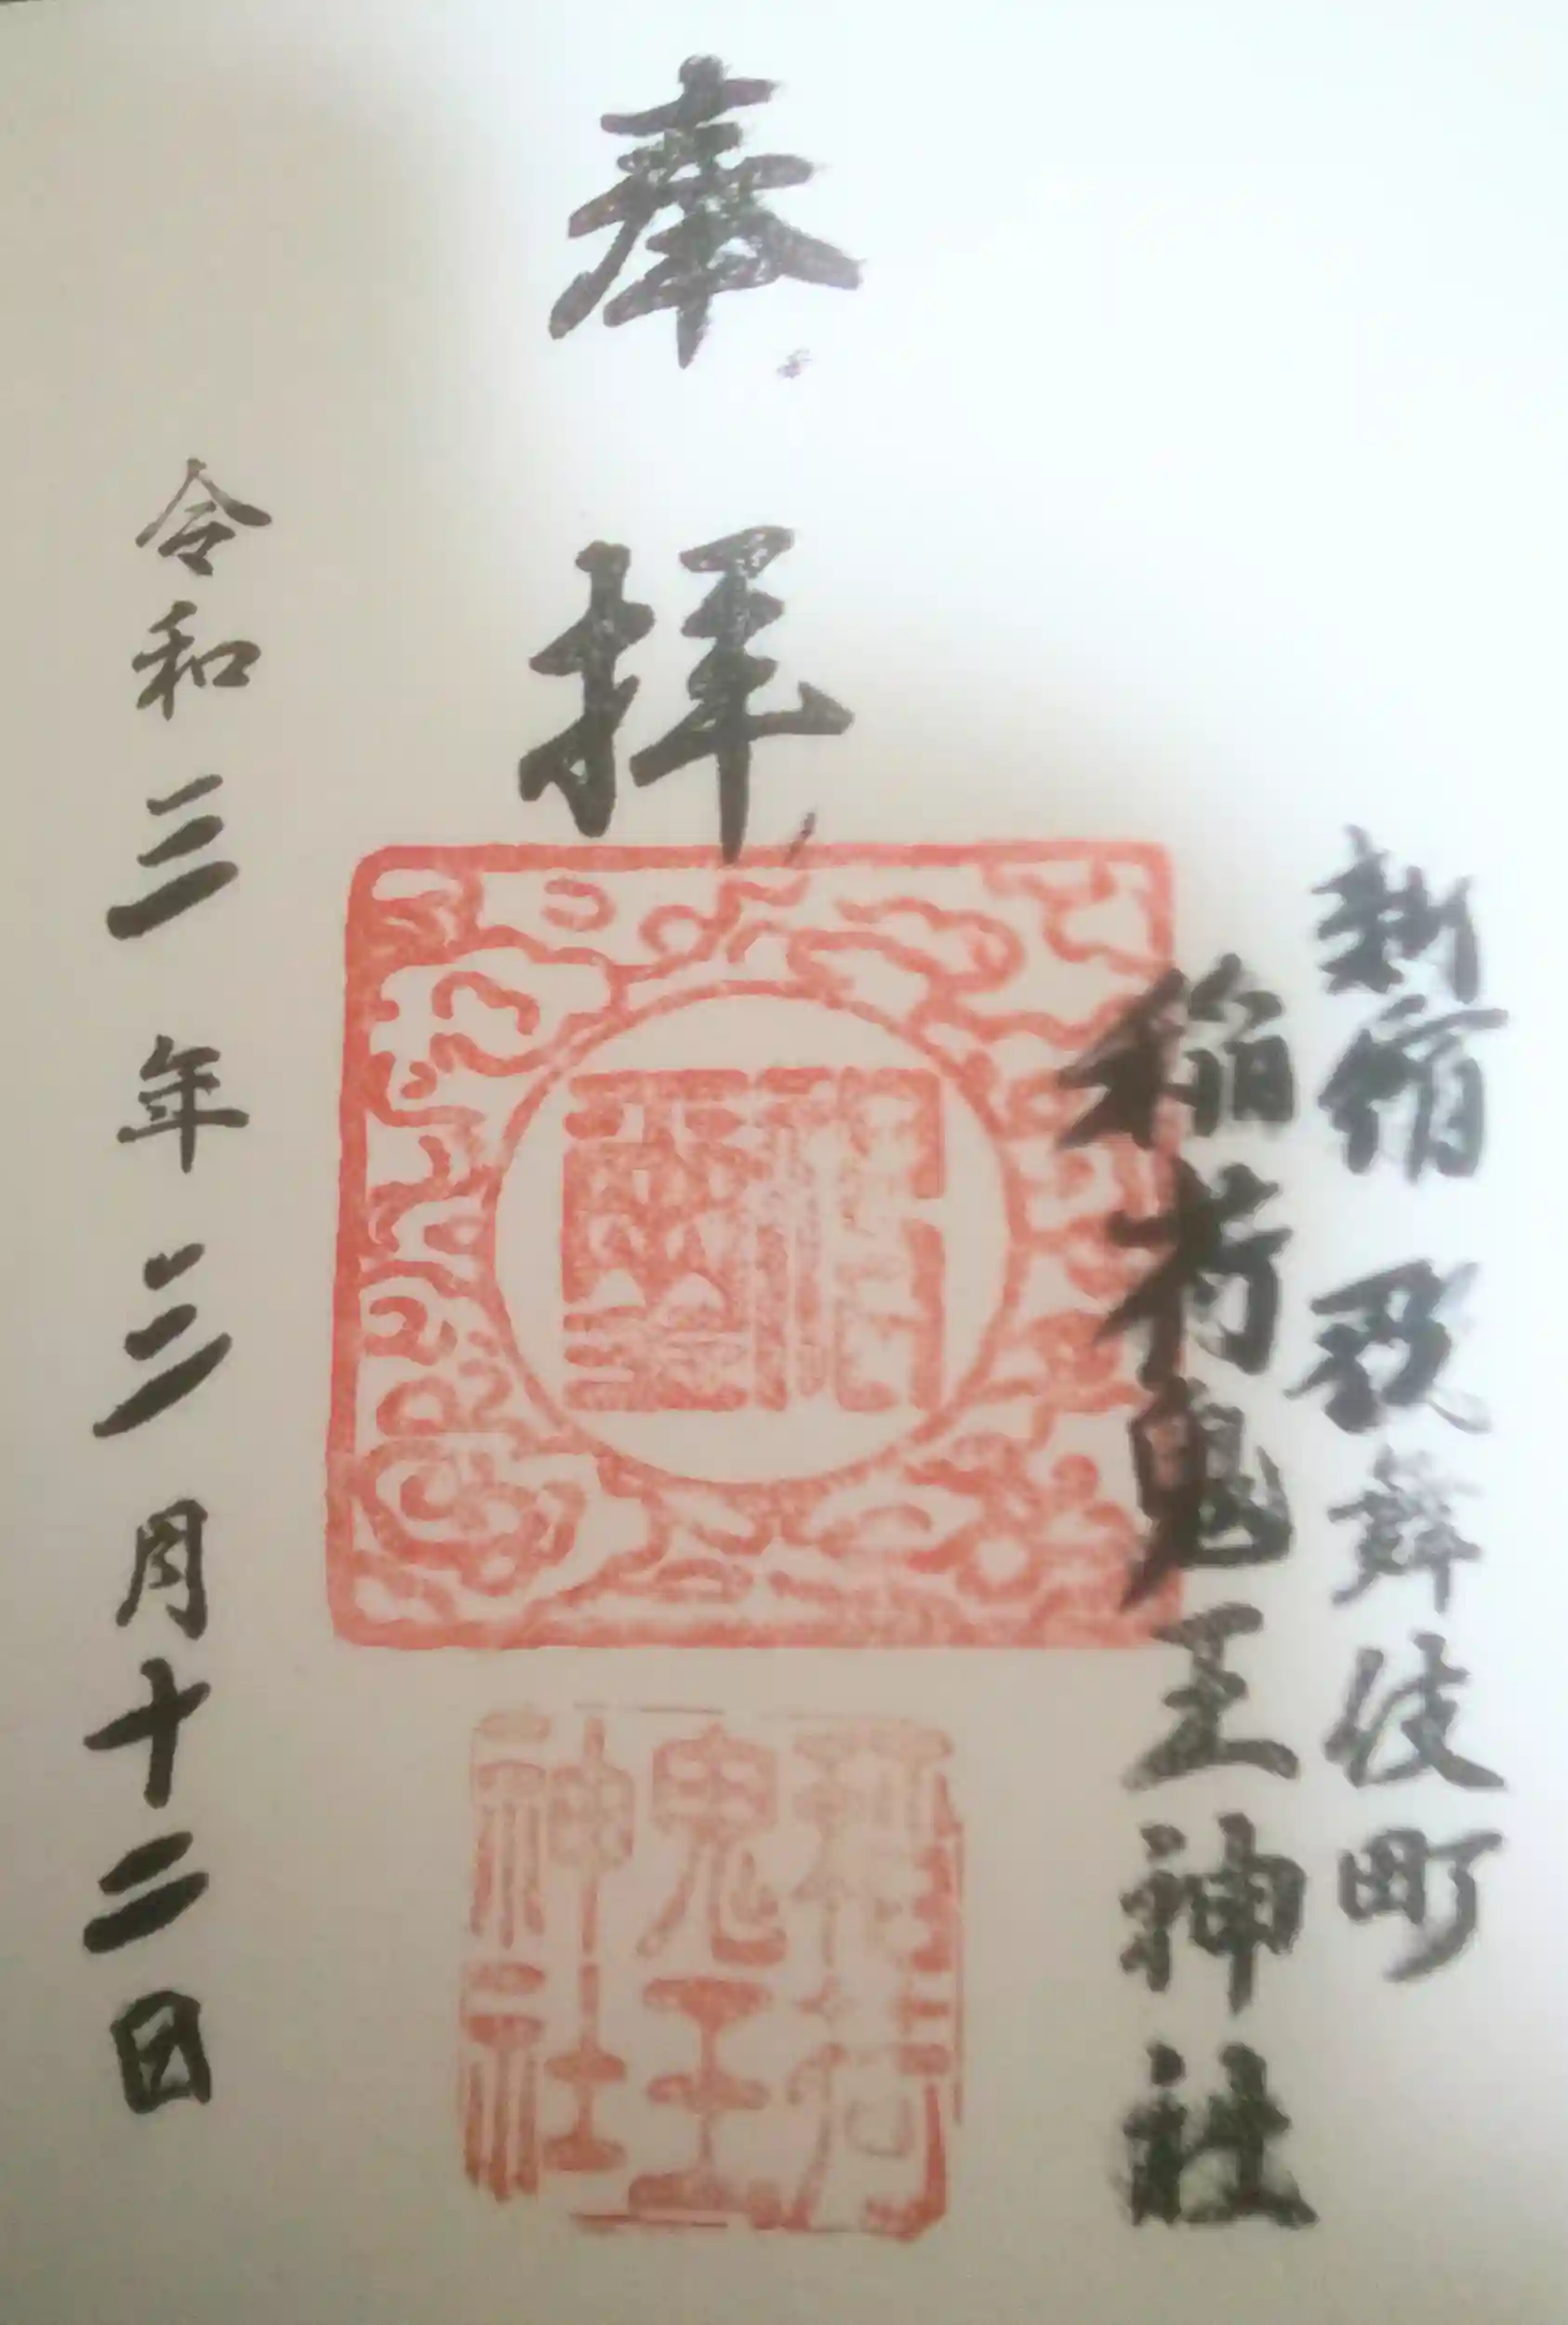 新宿 歌舞伎町
稲荷鬼王神社
奉拝
稲荷
鬼王
神社
令和三年三月十二日